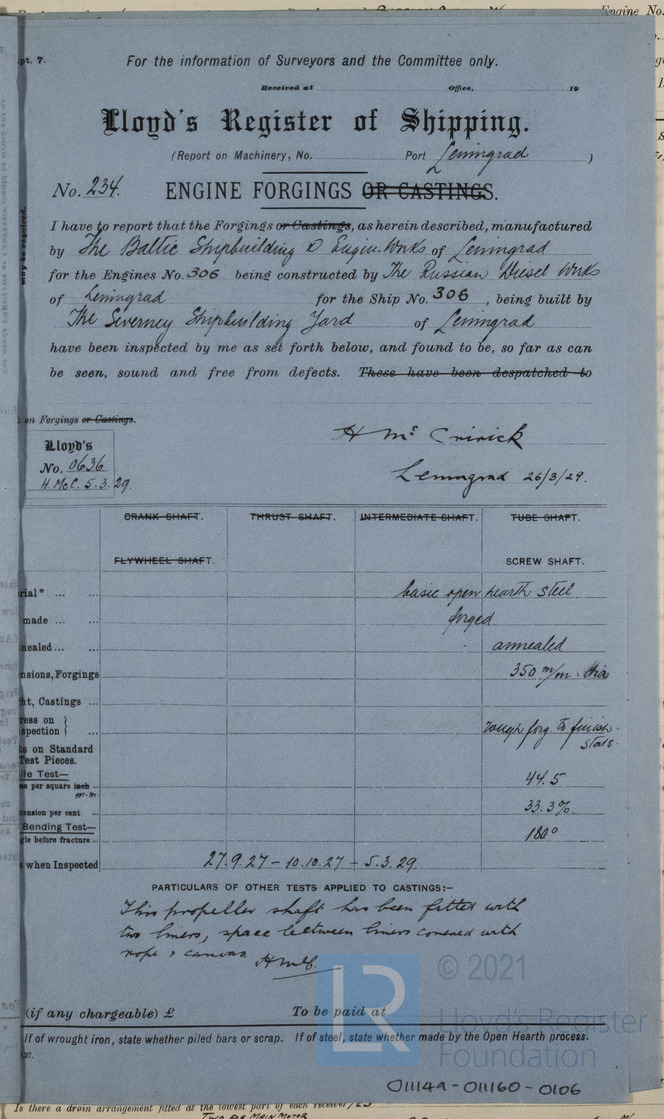 Engine No.
pt. 7.
For the information of Surveyors and the Committee only.
Received at Office, 19
Lloyd's Register of Shipping.
(Report on Machinery, No. Port Leningrad )
No. 234. ENGINE FORGINGS OR CASTINGS.
may be required.
I have to report that the Forgings or Castings, as herein described, manufactured
by The Baltic Shipbuilding & Engin. Works of Leningrad
for the Engines No. 306 being constructed by The Russian Diesel Works
of Leningrad for the Ship No. 306, being built by
The Severney Shipbuilding Yard of Leningrad
have been inspected by me as set forth below, and found to be, so far as can
be seen, sound and free from defects. These have been despatched to
on Forgings or Castings.
Lloyd's
No. 0636
H. McC. 5.3.29.
Leningrad 26/3/29.
CRANK SHAFT. THRUST SHAFT. INTERMEDIATE SHAFT. TUBE SHAFT.
FLYWHEEL SHAFT. SCREW SHAFT.
rial* ... ... basic open hearth steel
made ... ... forged
nealed ... ... annealed
nsions, Forgings 350 m/m. dia
ht, Castings ...
ress on }
spection } ... rough forg. to finish.
state.
s on Standard
Test Pieces.
le Test— 44.5
s per square inch ...
m.m.
tension per cent ... 33.3%
Bending Test— 180°
gle before fracture ...
when Inspected 27.9.27 - 10.10.27 - 5.3.29.
PARTICULARS OF OTHER TESTS APPLIED TO CASTINGS:-
This propeller shaft has been fitted with
two liners, space between liners covered with
rope & canvas HMcC.
© 2021
(if any chargeable) £ To be paid at
LR
Lloyd's Register
Foundation
If of wrought iron, state whether piled bars or scrap. If of steel, state whether made by the Open Hearth process.
27.
011149-011160-0106
Is there a drain arrangement fitted at the lowest part of each receiver YES